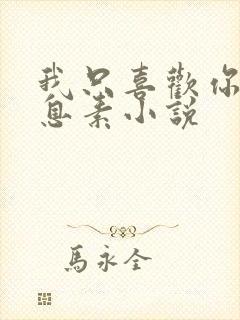 我只喜歡你
息素小說
馬永全